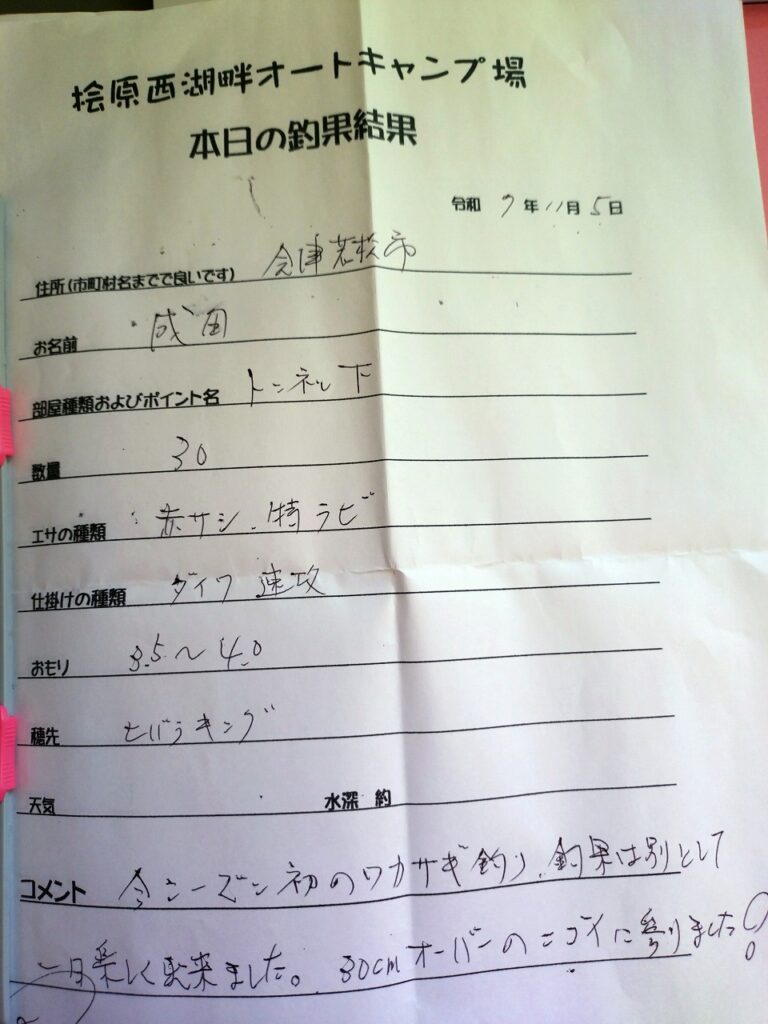 桧原西湖畔オートキャンプ場
本日の釣果結果
令和 7年 11月 5日
住所(市町村名までで良いです) 会津若松市
お名前 成田
部屋種類およびポイント名 トンネル下
数量 30
エサの種類 赤サシ、特ラビ
仕掛けの種類 ダイワ 速攻
おもり 3.5〜4.0
穂先 ヒバラキング
天気 水深 約
コメント 今シーズン初のワカサギ釣り、釣果は別として
一日楽しく出来ました。30cmオーバーのニゴイに
りました!